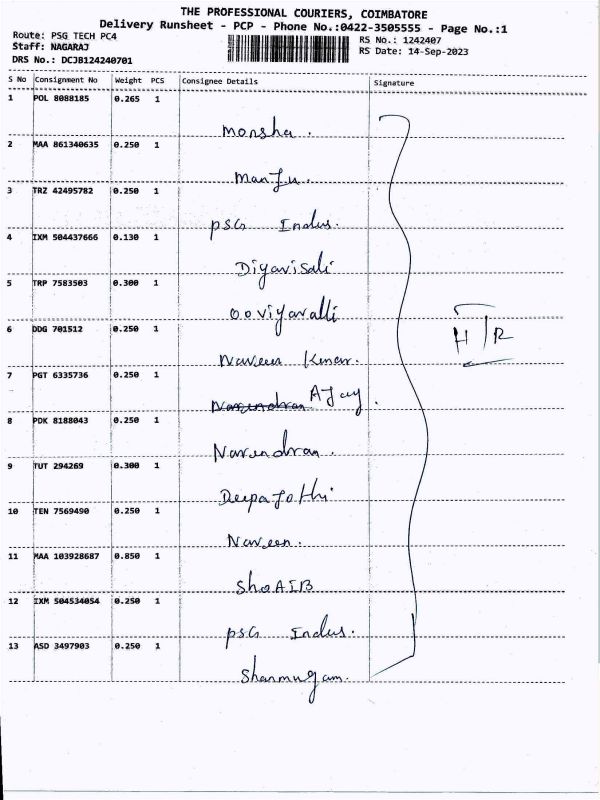 THE PROFESSIONAL COURIERS, COIMBATORE
Delivery Runsheet - PCP - Phone No.:0422-3505555 - Page No.:1
Route: PSG TECH PC4
RS No.: 1242407
Staff: NAGARAJ
RS Date: 14-Sep-2023
DRS No.: DCJB124240701
S No Consignment No Weight PCS Consignee Details Signature
1 POL 8088185 0.265 1
Monsha.
2 MAA 861340635 0.250 1
Manju.
3 TRZ 42495782 0.250 1
PSG Indus.
4 IXM 504437666 0.130 1
Diyavisali
5 TRP 7583503 0.300 1
Ooviyavalli
H/R
6 DDG 701512 0.250 1
Naveen Kumar.
7 PGT 6335736 0.250 1
Narendran AJay.
8 PDK 8188043 0.250 1
Narendran.
9 TUT 294269 0.300 1
DeepaJothi
10 TEN 7569490 0.250 1
Naveen.
11 MAA 103928687 0.850 1
ShoAIB
12 IXM 504534054 0.250 1
PSG Indus.
13 ASD 3497903 0.250 1
Shanmugam.